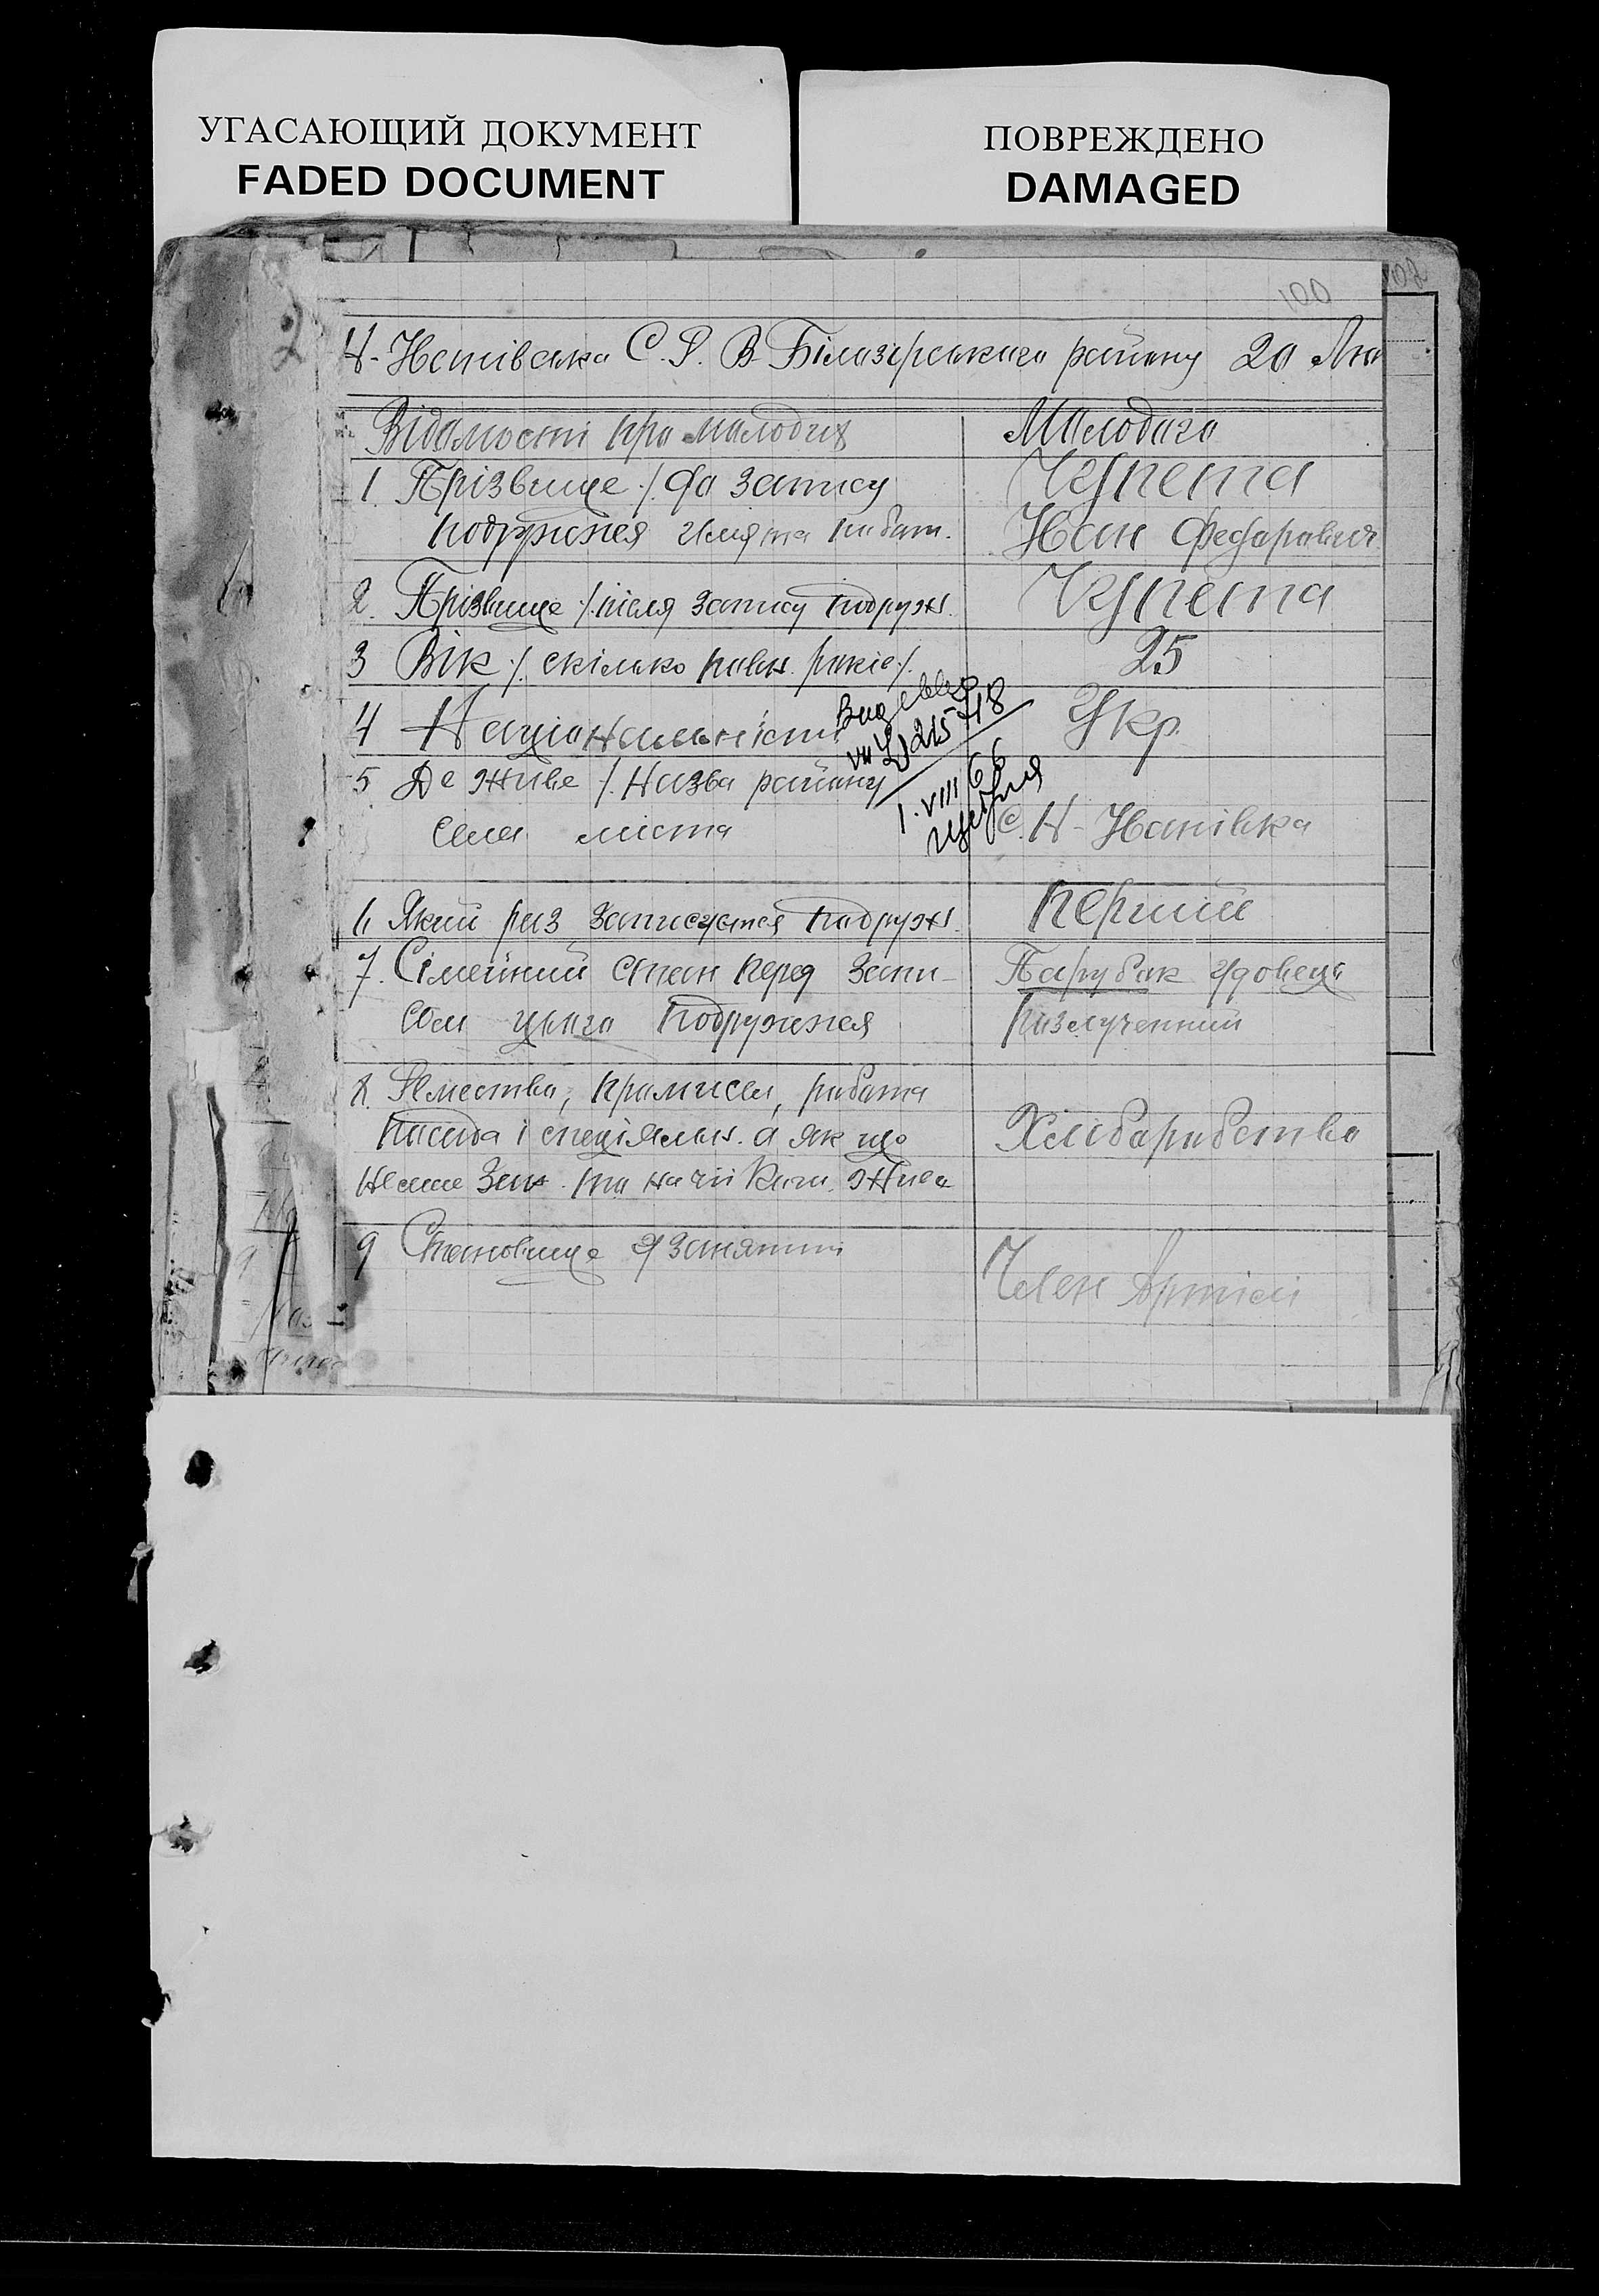 УГАСАЮЩИЙ ДОКУМЕНТ
FADED DOCUMENT
ПОВРЕЖДЕНО
DAMAGED
100
Н-Іванівська С.Р. В-Білазерськаго району 20 Лю
Відомості про молодих
Молодого
1 Прізвище /. до запису
подружжя имя та
Іван Федорович
2. Прізвище /. після запису подруж.
3 Вік /. скілько повн. років /.
25
4 Національність
Укр.
5 Де живе /. назва району
села міста
с. Н-Іванівка
1. VIII 66
6 Який раз записуется подруж.
перший
7. Сімейний стан перед запи-
сом цього подружжя
Парубак удовець
разлученний
8. Ремество, промисел, работа
посада і спеціяльн. а як що
немає зан. то на чиї кош. живе
Хлібаробство
9 Становище у занятті
Член Артілі